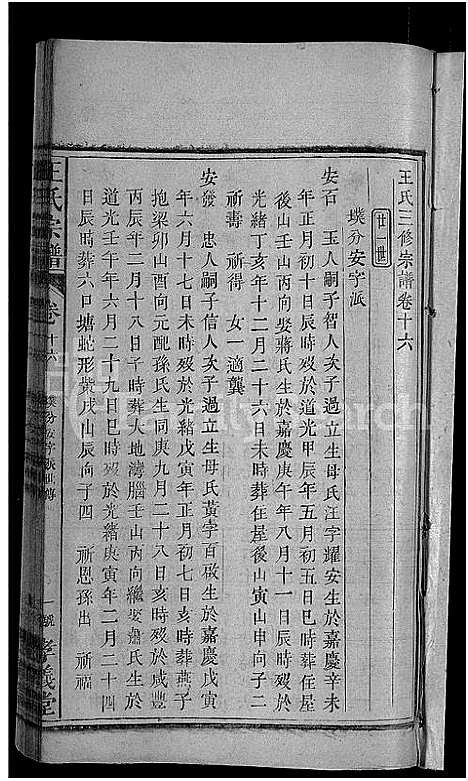 王氏三修宗譜卷十六
廿一世
璞分安字派
安百 玉人嗣子智人次子過立生母氏汪字耀安生於嘉慶辛未
年正月初十日辰時歿於道光甲辰年五月初五日巳時葬住屋
後山壬山丙向娶蔣氏生於嘉慶庚午年八月十一日辰時歿於
光緒丁亥年十二月二十六日未時葬住屋後山寅山申向子二
祈壽 祈得 女一適龔
安發 忠人嗣子信人次子過立生母氏黃字百啟生於嘉慶戊寅
年六月十七日未時歿於光緒戊寅年正月初七日亥時葬燕子
抱梁卯山酉向元配孫氏生同庚九月二十八日亥時歿於咸豐
丙辰年二月十八日午時葬大地灣腦壬山丙向繼娶蕭氏生於
道光壬午年六月二十九日巳時歿於光緒庚寅年二月二十四
日辰時葬六口塘蛇形黃戌山辰向子四 祈恩孫出 祈福
王氏宗譜 卷十六 璞分安字派世傳 一 孝義堂
FamilySearch